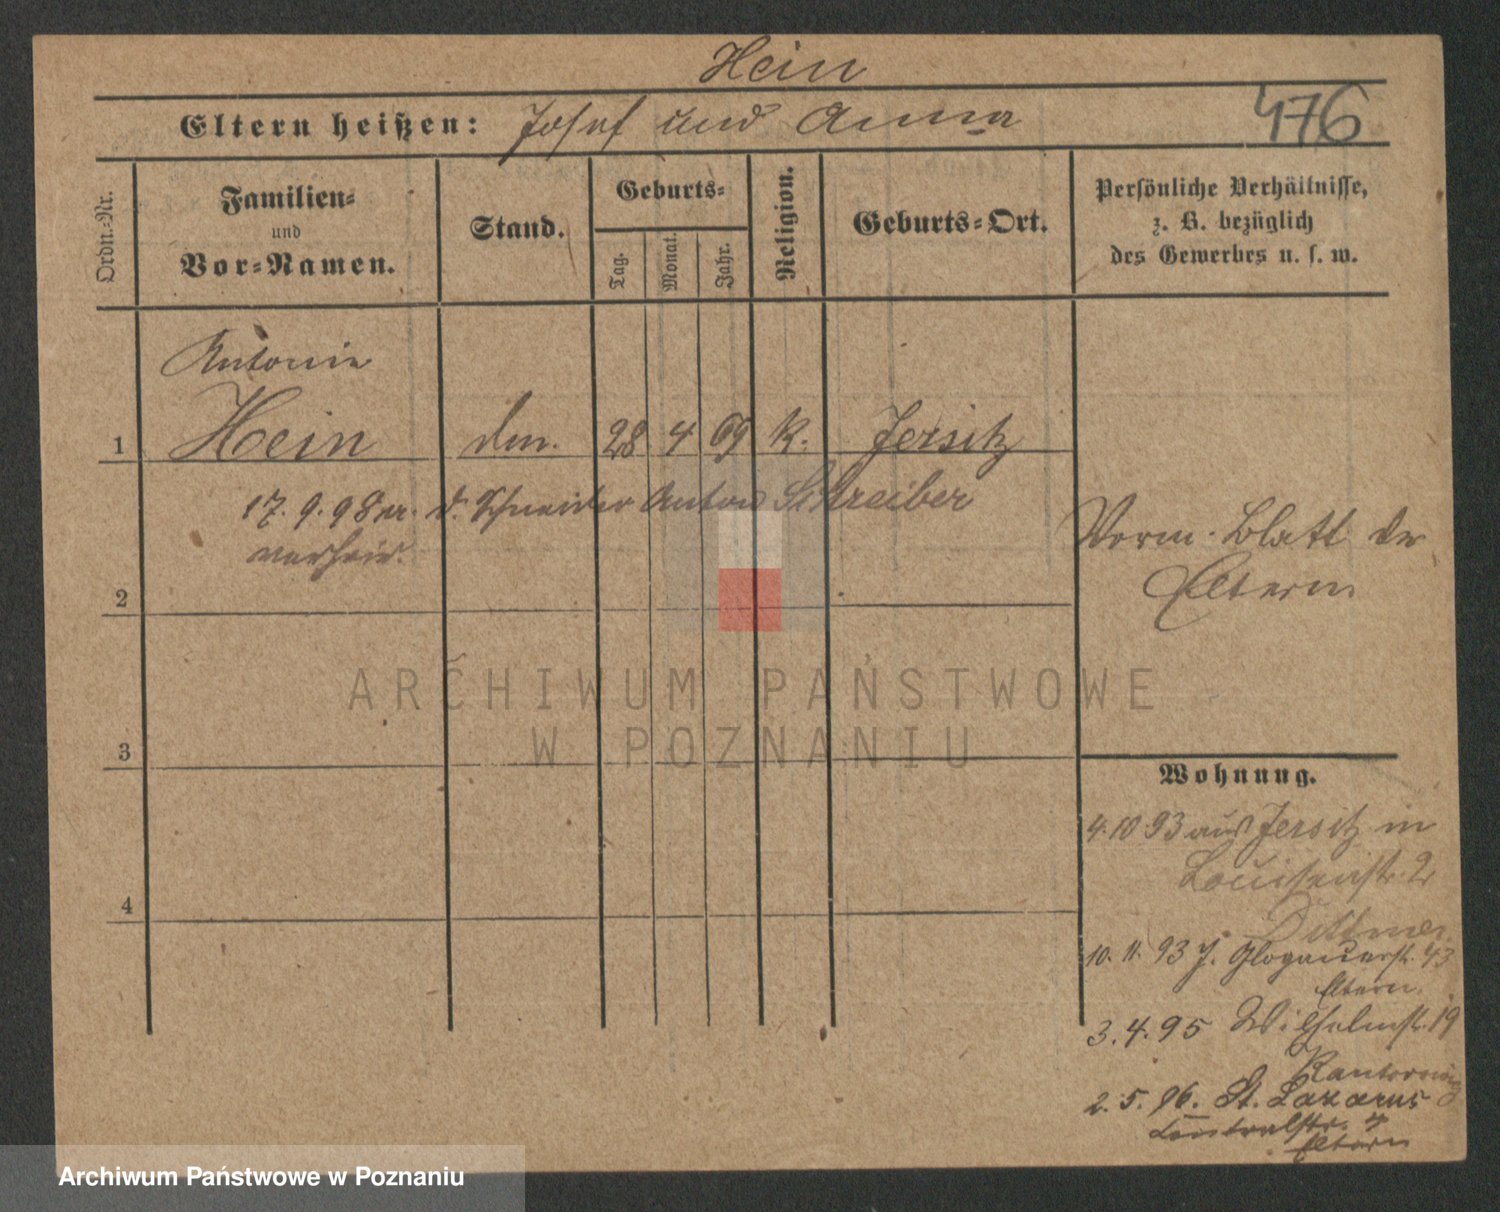 Hein
Eltern heißen: Josef und Anna
476
Ordn.-Nr.
Familien-
und
Vor-Namen.
Stand.
Geburts-
Tag.
Monat.
Jahr.
Religion.
Geburts-Ort.
Persönliche Verhältnisse,
z. B. bezüglich
des Gewerbes u. s. w.
Antonie
1 Hein 28 4 69 k. Jersitz
17. 9. 98 d. Schneider Anton Schreiber
verheir.
2
Vorm. Blatt der
Eltern
ARCHIWUM PAŃSTWOWE
W POZNANIU
3
Wohnung.
4. 10 93 aus Jersitz in
Louisenstr. 2
4
Dittmer
10. 11. 93 J. Glogauerstr. 43
Eltern.
3. 4. 95 Wilhelmstr. 19
2. 5. 96. St. Lazarus
Centralstr. 4
Eltern
Archiwum Państwowe w Poznaniu